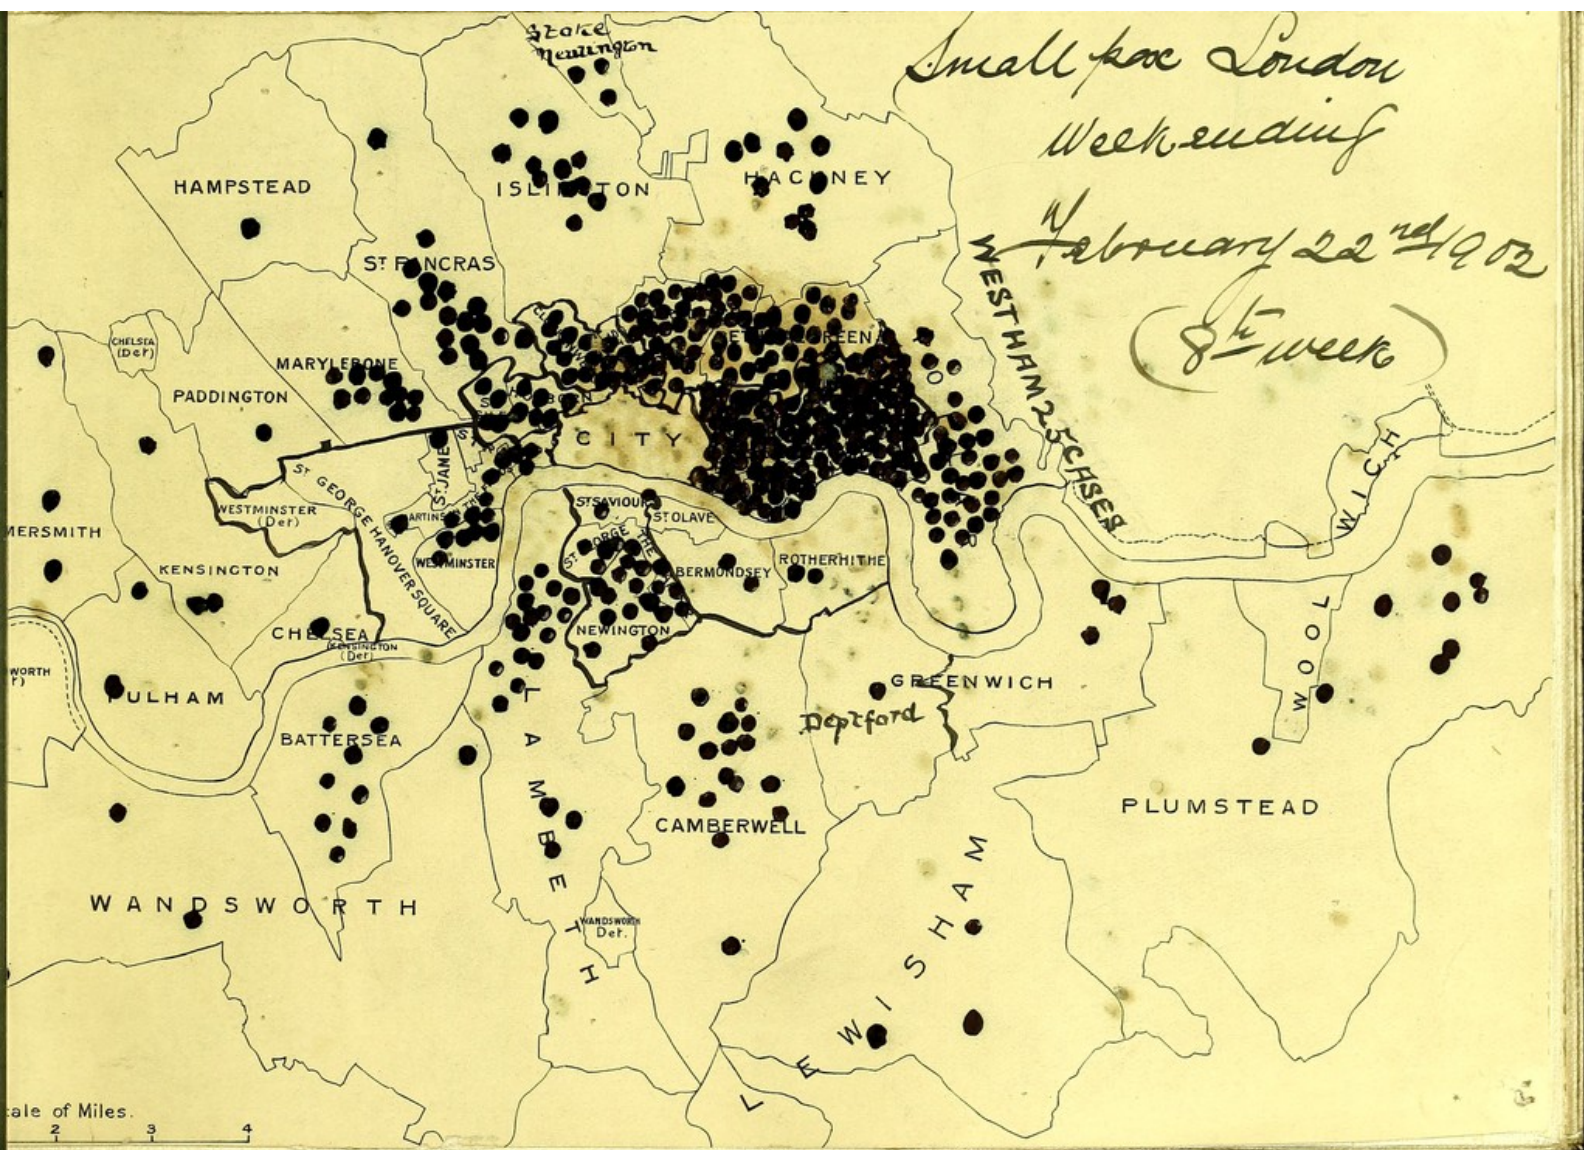 Small pox London
Week ending
February 22nd 1902
(8th week)
Stoke
Newington
HAMPSTEAD
ISLINGTON
HACKNEY
ST PANCRAS
WEST HAM 25 CASES
CHELSEA
(Det)
MARYLEBONE
PADDINGTON
HOLBORN
CITY
ST JAME
ST GEORGE HANOVER SQUARE
WESTMINSTER
(Det)
MERSMITH
KENSINGTON
WESTMINSTER
ST SAVIOUR
ST OLAVE
ST GEORGE THE
BERMONDSEY
ROTHERHITHE
NEWINGTON
CHELSEA
(KENSINGTON
(Det)
WORTH
FULHAM
BATTERSEA
LAMBETH
GREENWICH
Deptford
WOOLWICH
PLUMSTEAD
CAMBERWELL
WANDSWORTH
WANDSWORTH
Det.
LEWISHAM
cale of Miles.
2 3 4